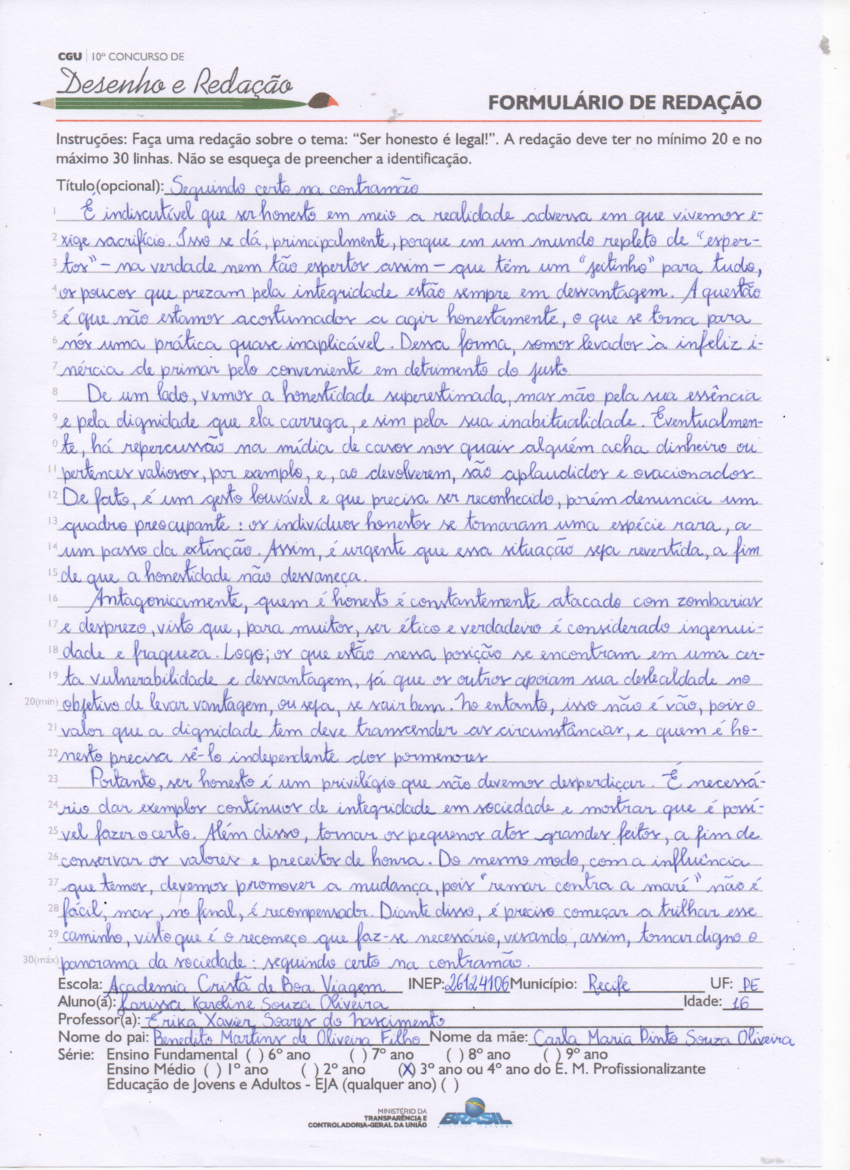 CGU | 10º CONCURSO DE
Desenho e Redação
FORMULÁRIO DE REDAÇÃO
Instruções: Faça uma redação sobre o tema: “Ser honesto é legal!”. A redação deve ter no mínimo 20 e no
máximo 30 linhas. Não se esqueça de preencher a identificação.
Título(opcional): Seguindo certo na contramão
1 É indiscutível que ser honesto em meio a realidade adversa em que vivemos e-
2 xige sacrifício. Isso se dá, principalmente, porque em um mundo repleto de “esper-
3 tos” – na verdade nem tão espertos assim – que têm um “jeitinho” para tudo,
4 os poucos que prezam pela integridade estão sempre em desvantagem. A questão
5 é que não estamos acostumados a agir honestamente, o que se torna para
6 nós uma prática quase inaplicável. Dessa forma, somos levados à infeliz i-
7 nércia de primar pelo conveniente em detrimento do justo.
8 De um lado, vemos a honestidade superestimada, mas não pela sua essência
9 e pela dignidade que ela carrega, e sim pela sua inabitualidade. Eventualmen-
0 te, há repercussão na mídia de casos nos quais alguém acha dinheiro ou
11 pertences valiosos, por exemplo, e, ao devolverem, são aplaudidos e ovacionados.
12 De fato, é um gesto louvável e que precisa ser reconhecido, porém denuncia um
13 quadro preocupante: os indivíduos honestos se tornaram uma espécie rara, a
14 um passo da extinção. Assim, é urgente que essa situação seja revertida, a fim
15 de que a honestidade não desvaneça.
16 Antagonicamente, quem é honesto é constantemente atacado com zombarias
17 e desprezo, visto que, para muitos, ser ético e verdadeiro é considerado ingenui-
18 dade e fraqueza. Logo, os que estão nessa posição se encontram em uma cer-
19 ta vulnerabilidade e desvantagem, já que os outros apoiam sua deslealdade no
20(mín) objetivo de levar vantagem, ou seja, se sair bem. No entanto, isso não é vão, pois o
21 valor que a dignidade tem deve transcender as circunstâncias, e quem é ho-
22 nesto precisa sê-lo independente dos pormenores
23 Portanto, ser honesto é um privilégio que não devemos desperdiçar. É necessá-
24 rio dar exemplos contínuos de integridade em sociedade e mostrar que é possí-
25 vel fazer o certo. Além disso, tornar os pequenos atos grandes feitos, a fim de
26 conservar os valores e preceitos de honra. Do mesmo modo, com a influência
27 que temos, devemos promover a mudança, pois “remar contra a maré” não é
28 fácil; mas, no final, é recompensador. Diante disso, é preciso começar a trilhar esse
29 caminho, visto que é o recomeço que faz-se necessário, visando, assim, tornar digno o
30(máx) panorama da sociedade: seguindo certo na contramão.
Escola: Academia Cristã de Boa Viagem INEP: 26124106 Município: Recife UF: PE
Aluno(a): Larissa Karoline Souza Oliveira Idade: 16
Professor(a): Erika Xavier Soares do Nascimento
Nome do pai: Benedito Martins de Oliveira Filho Nome da mãe: Carla Maria Pinto Souza Oliveira
Série: Ensino Fundamental ( ) 6º ano ( ) 7º ano ( ) 8º ano ( ) 9º ano
Ensino Médio ( ) 1º ano ( ) 2º ano (X) 3º ano ou 4º ano do E. M. Profissionalizante
Educação de Jovens e Adultos - EJA (qualquer ano) ( )
MINISTÉRIO DA
TRANSPARÊNCIA E
CONTROLADORIA-GERAL DA UNIÃO
BRASIL